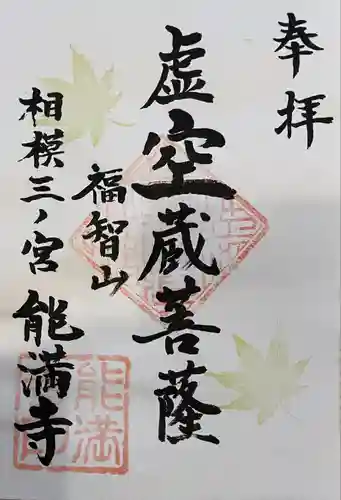 奉拝
虚空蔵菩薩
福智山
相模三ノ宮 能満寺
能満